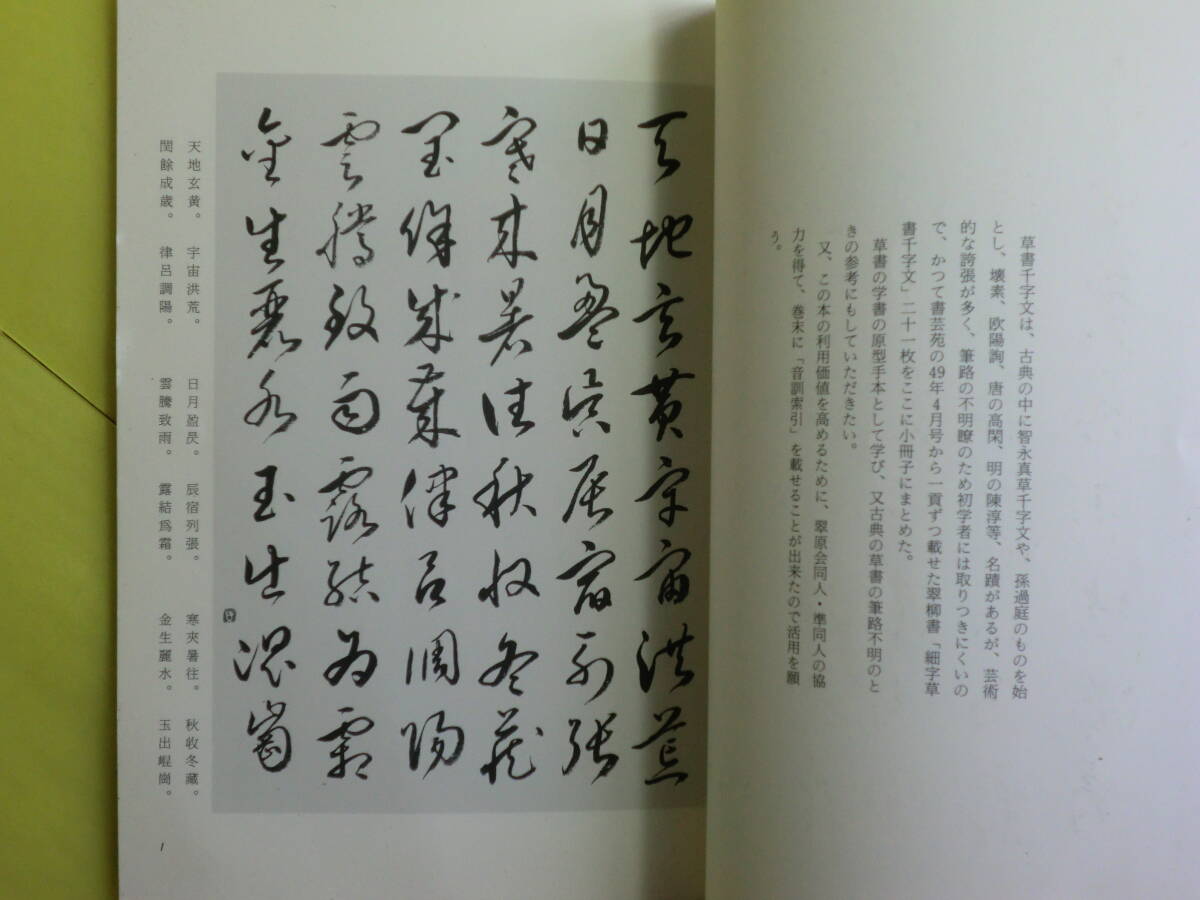 草書千字文は、古典の中に智永真草千字文や、孫過庭のものを始
とし、壊素、欧陽詢、唐の高閑、明の陳淳等、名蹟があるが、芸術
的な誇張が多く、筆路の不明瞭のため初学者には取りつきにくいの
で、かつて書芸苑の49年4月号から一頁ずつ載せた翠柳書「細字草
書千字文」二十一枚をここに小冊子にまとめた。
草書の学書の原型手本として学び、又古典の草書の筆路不明のと
きの参考にもしていただきたい。
又、この本の利用価値を高めるために、翠原会同人・準同人の協
力を得て、巻末に「音訓索引」を載せることが出来たので活用を願
う。
天地玄黄宇宙洪荒
日月盈昃辰宿列張
寒来暑往秋收冬蔵
閏餘成歳律呂調陽
雲騰致雨露結為霜
金生麗水玉出崐崗
天地玄黄。 宇宙洪荒。 日月盈昃。 辰宿列張。 寒来暑往。 秋收冬藏。
閏餘成歳。 律呂調陽。 雲騰致雨。 露結爲霜。 金生麗水。 玉出崐崗。
1